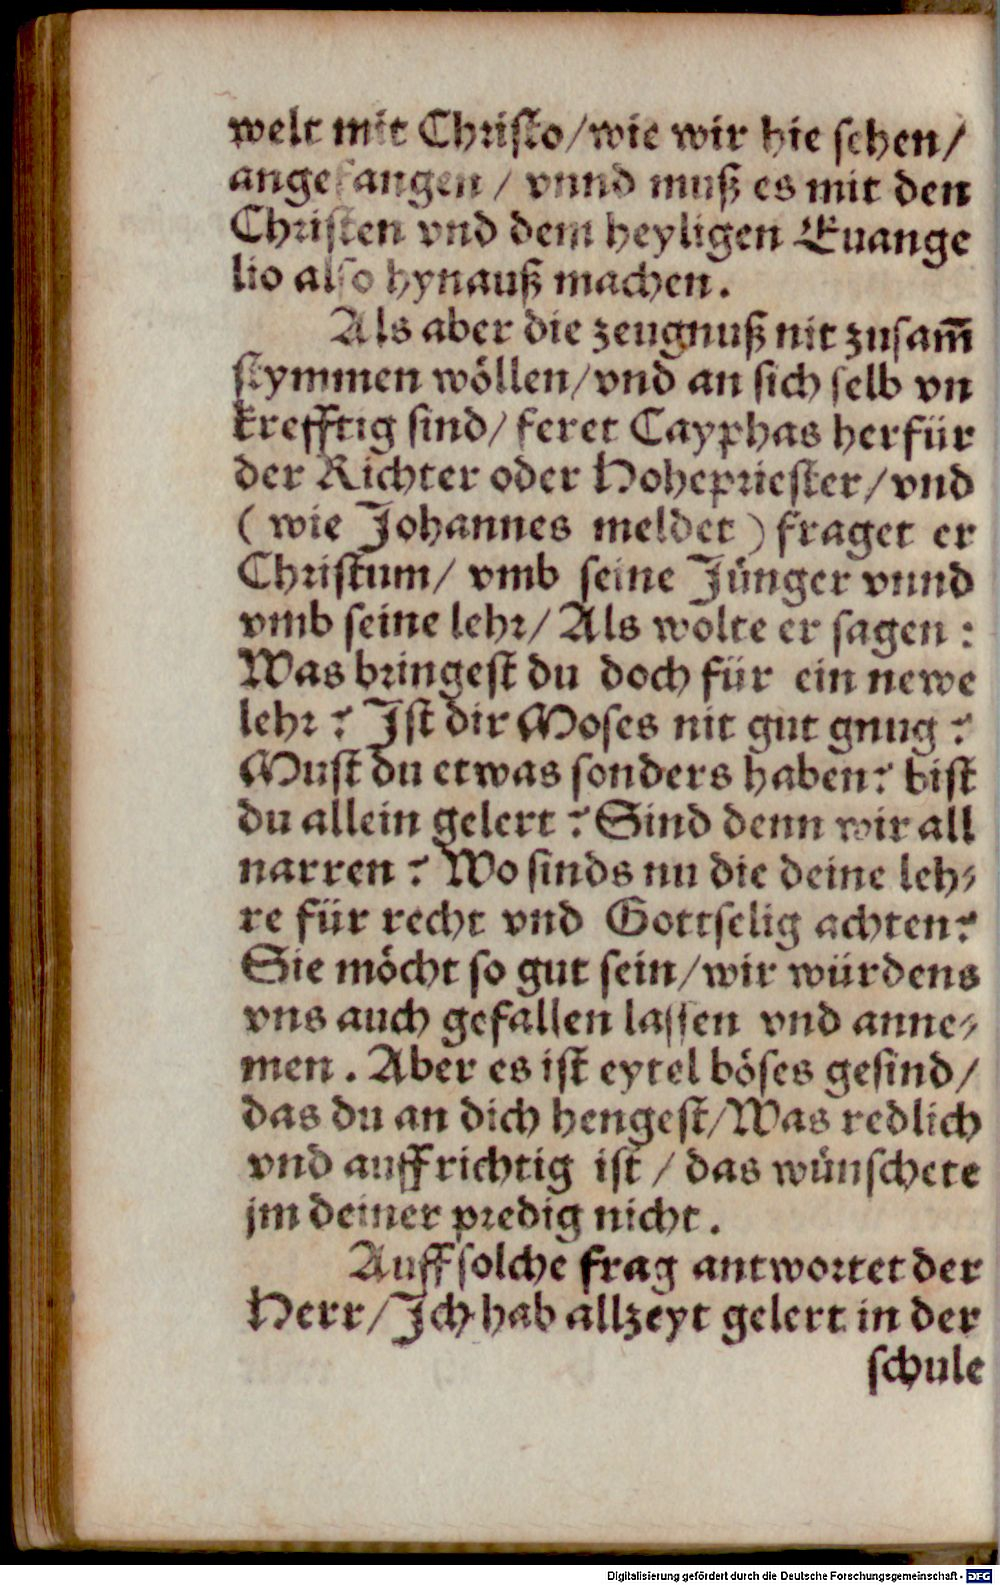 welt mit Christo/wie wir hie sehen/
angefangen / vnnd muß es mit den
Christen vnd dem heyligen Euange
lio also hynauß machen.
Als aber die zeugnuß nit zusam̄
stymmen wöllen/vnd an sich selb vn
krefftig sind/ feret Cayphas herfür
der Richter oder Hohepriester/vnd
(wie Johannes meldet) fraget er
Christum/ vmb seine Jünger vnnd
vmb seine lehr/ Als wolte er sagen:
Was bringest du doch für ein newe
lehr? Ist dir Moses nit gut gnug?
Must du etwas sonders haben? bist
du allein gelert? Sind denn wir all
narren? Wo sinds nu die deine leh-
re für recht vnd Gottselig achten?
Sie möcht so gut sein/wir würdens
vns auch gefallen lassen vnd anne-
men. Aber es ist eytel böses gesind/
das du an dich hengest/Was redlich
vnd auffrichtig ist / das wünschete
jm deiner predig nicht.
Auff solche frag antwortet der
Herr/Ich hab allzeyt gelert in der
schule
Digitalisierung gefördert durch die Deutsche Forschungsgemeinschaft - DFG